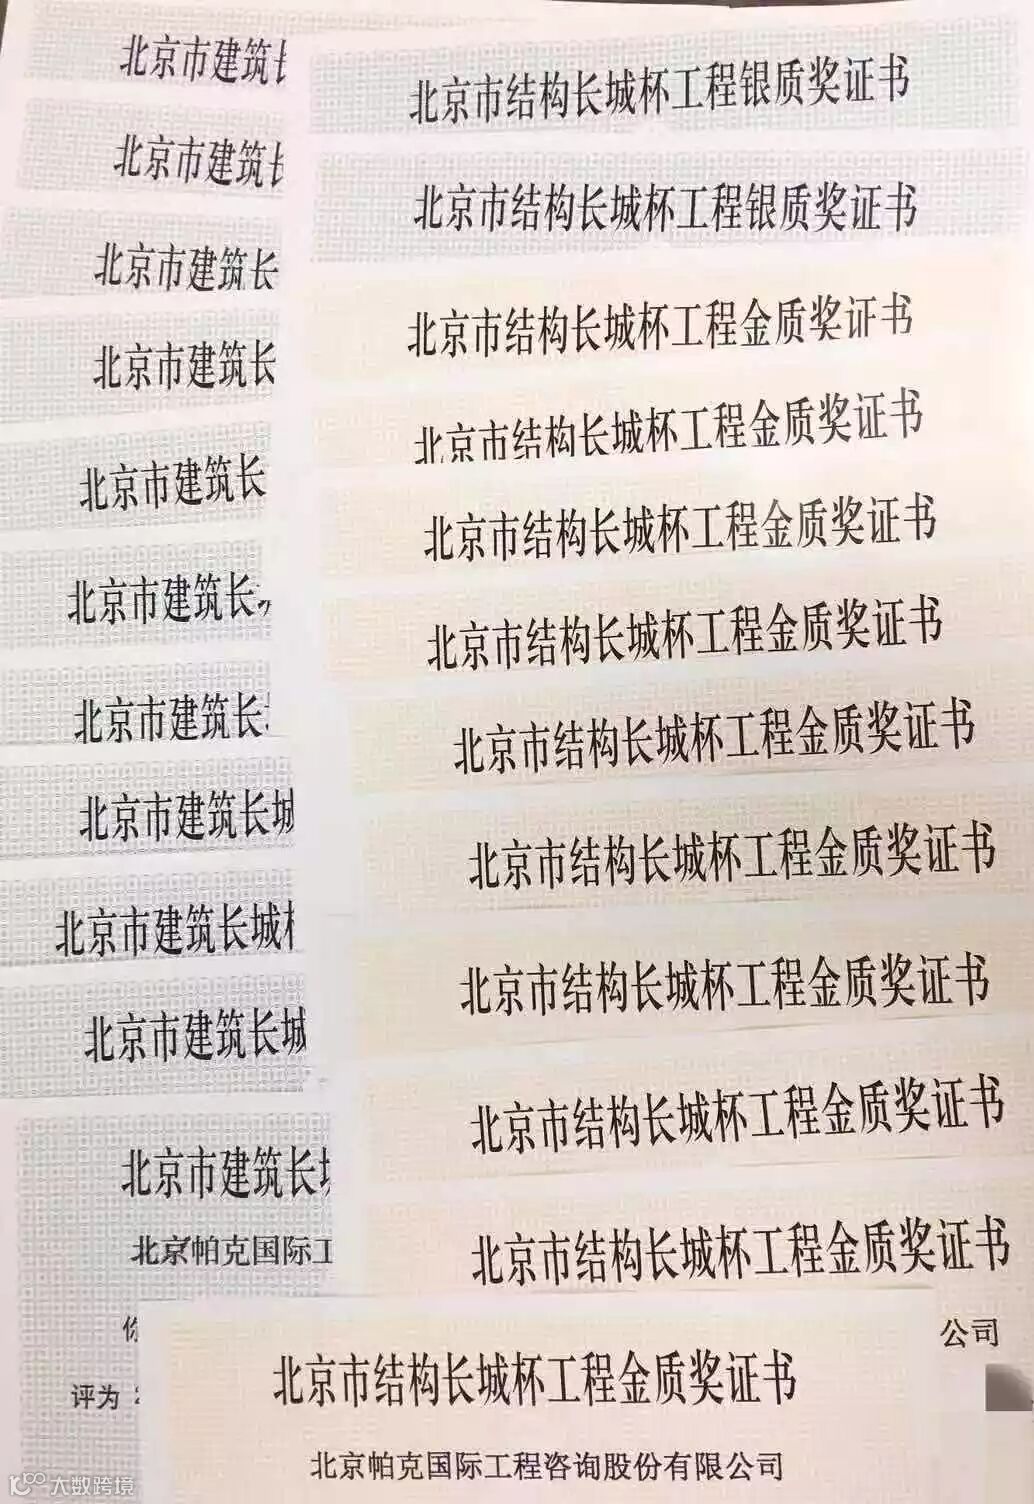 北京市建筑长
北京市建筑长
北京市建筑长
北京市建筑长
北京市建筑长
北京市建筑长
北京市建筑长
北京市建筑长城
北京市建筑长城
北京市建筑长城
北京市建筑长
北京帕克国际工
评为
北京市结构长城杯工程银质奖证书
北京市结构长城杯工程银质奖证书
北京市结构长城杯工程金质奖证书
北京市结构长城杯工程金质奖证书
北京市结构长城杯工程金质奖证书
北京市结构长城杯工程金质奖证书
北京市结构长城杯工程金质奖证书
北京市结构长城杯工程金质奖证书
北京市结构长城杯工程金质奖证书
北京市结构长城杯工程金质奖证书
北京市结构长城杯工程金质奖证书
公司
北京市结构长城杯工程金质奖证书
北京帕克国际工程咨询股份有限公司
大数跨境